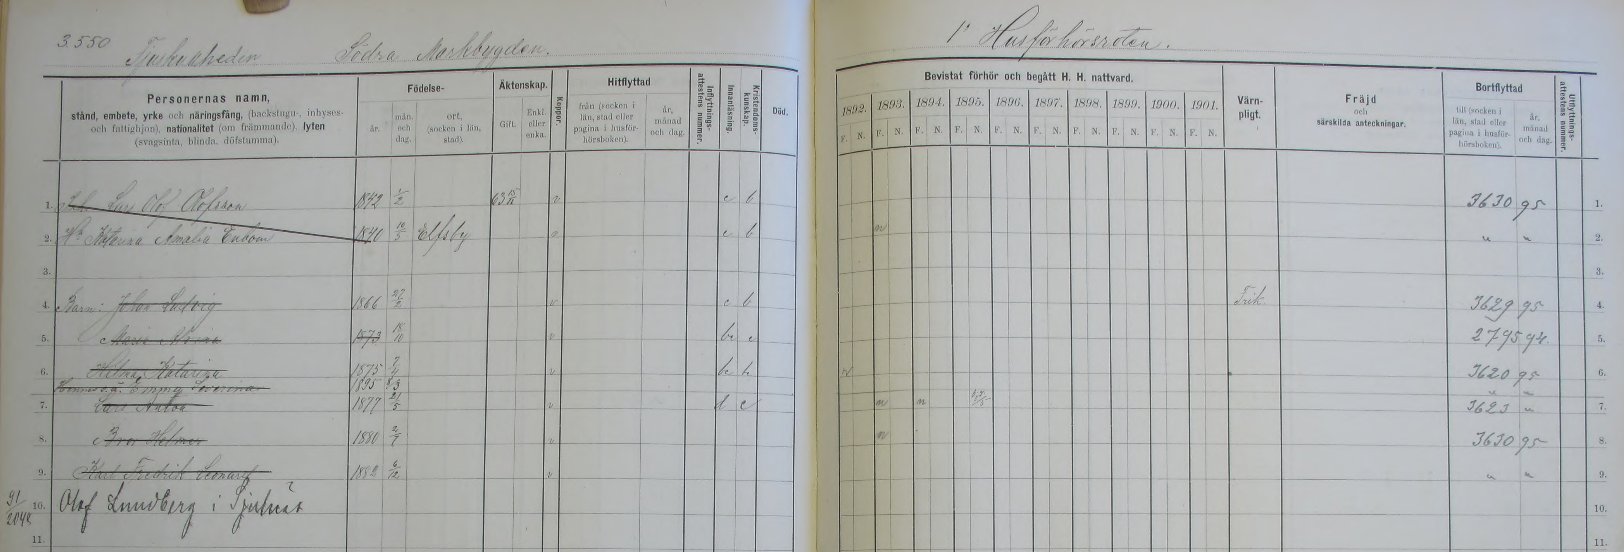 3.550
Södra Markbygden.
Personernas namn,
stånd, embete, yrke och näringsfång, (backstugu-, inhyses-
och fattighjon), nationalitet (om främmande), lyten
(svagsinta, blinda, döfstumma).
Födelse-
år.
mån.
och
dag.
ort,
(socken i län,
stad).
Äktenskap.
Gift.
Enkl.
eller
enka.
Koppor.
Hitflyttad
från (socken i
län, stad eller
pagina i husför-
hörsboken).
år,
månad
och dag.
Inflyttnings-
attestens nummer.
Innanläsning.
Kristendoms-
kunskap.
Död.
1. Lars Olof Olofsson 1842 1/2 63 v c b
2. H. Katarina Amalia Enbom 1840 Elfsby v c b
3.
4. Barn: Johan Ludvig 1866 27/2 v c b
5. Maria 1873 v
6. Helma Katarina 1875 v
Emma Severina 1895
7. Lars Anton 1877 21/5 v d c
8. Bror Helmer 1880 v
9. Karl Fredrik Leonard 1882 6/12 v
91/2048 10. Olof Lundberg i
11.
1 Husförhörsroten.
Bevistat förhör och begått H. H. nattvard.
1892. 1893. 1894. 1895. 1896. 1897. 1898. 1899. 1900. 1901.
F. N. F. N. F. N. F. N. F. N. F. N. F. N. F. N. F. N. F. N.
Värn-
pligt.
Fräjd
och
särskilda anteckningar.
Bortflyttad
till (socken i
län, stad eller
pagina i husför-
hörsboken).
år,
månad
och dag.
Utflyttnings-
attestens nummer.
3630 95 1.
n " " 2.
3.
Frik. 3629 95 4.
2795 94 5.
3620 95 6.
" "
n n 3623 " 7.
n 3630 95 8.
" " 9.
10.
11.